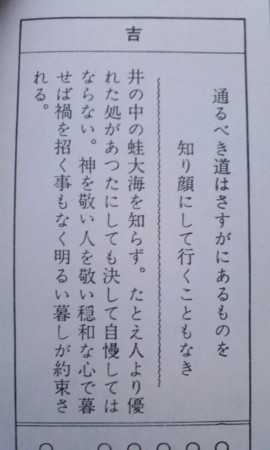 吉
通るべき道はさすがにあるものを
知り顔にして行くこともなき
井の中の蛙大海を知らず。たとえ人より優
れた処があつたにしても決して自慢しては
ならない。神を敬い人を敬い穏和な心で暮
せば禍を招く事もなく明るい暮しが約束さ
れる。